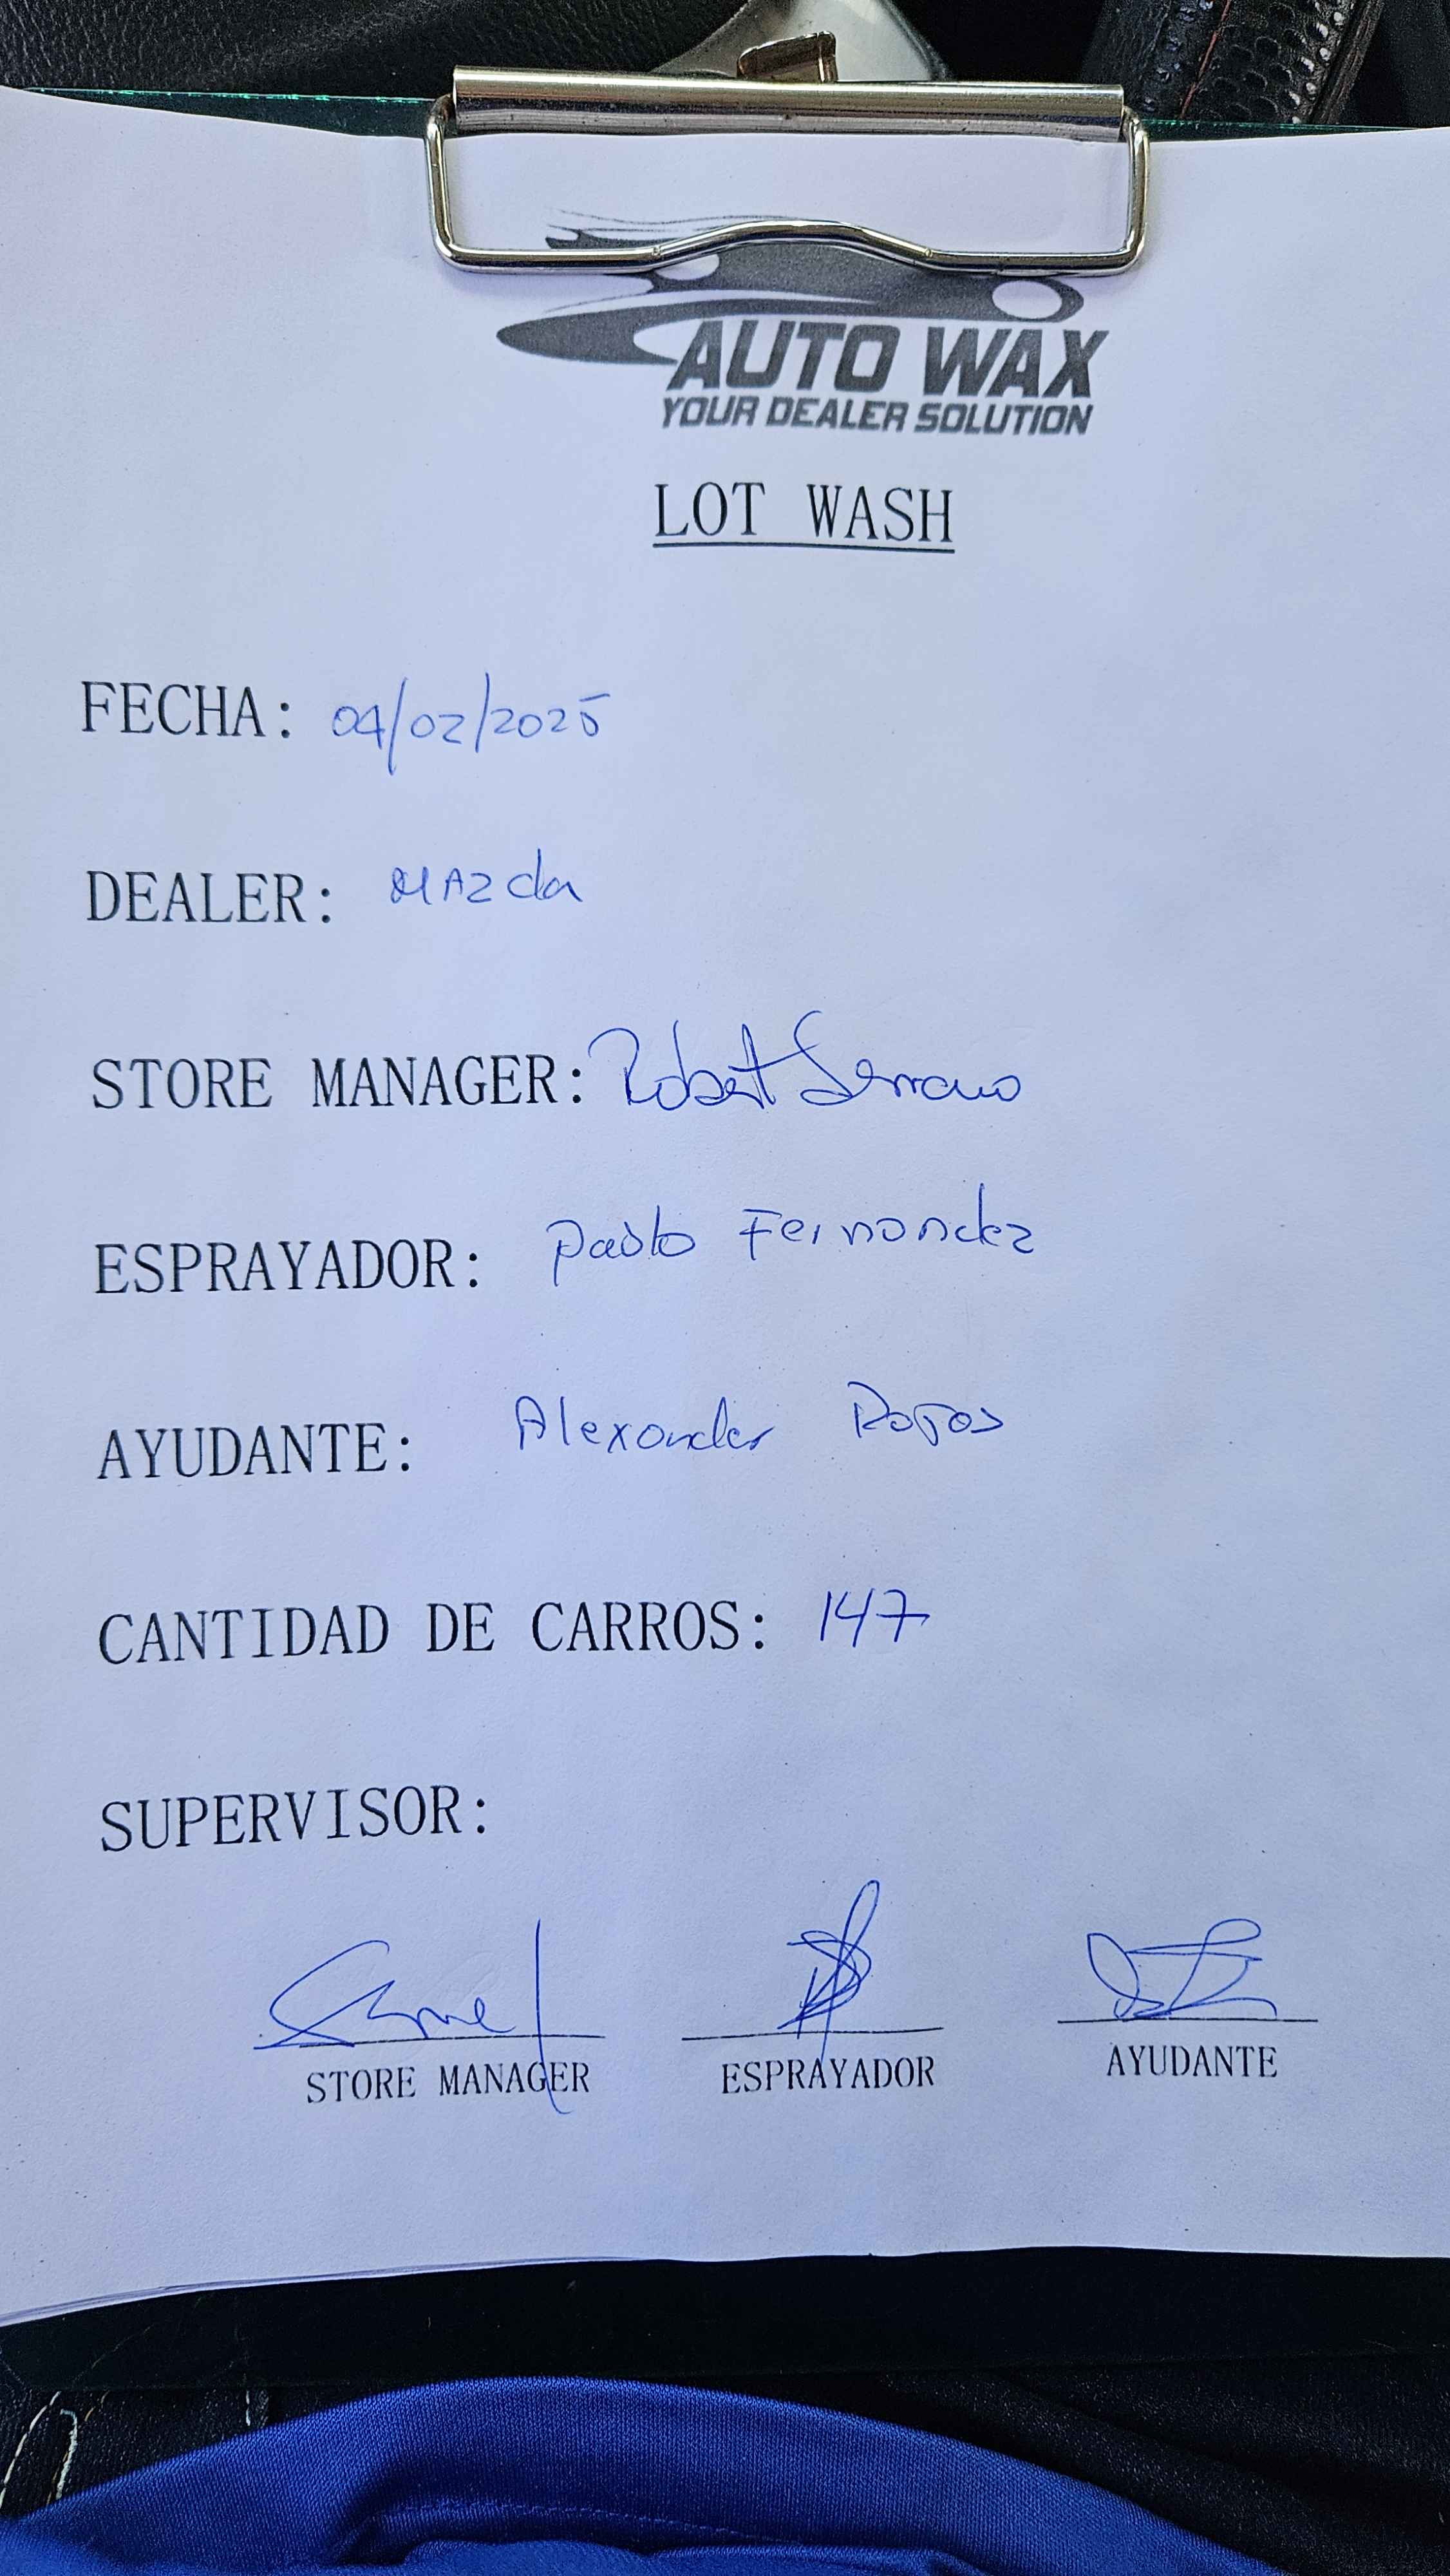 AUTO WAX
YOUR DEALER SOLUTION
LOT WASH
FECHA: 04/02/2025
DEALER: MAzda
STORE MANAGER: Robert Serrano
ESPRAYADOR: Pablo Fernandez
AYUDANTE: Alexander Rojas
CANTIDAD DE CARROS: 147
SUPERVISOR:
STORE MANAGER ESPRAYADOR AYUDANTE